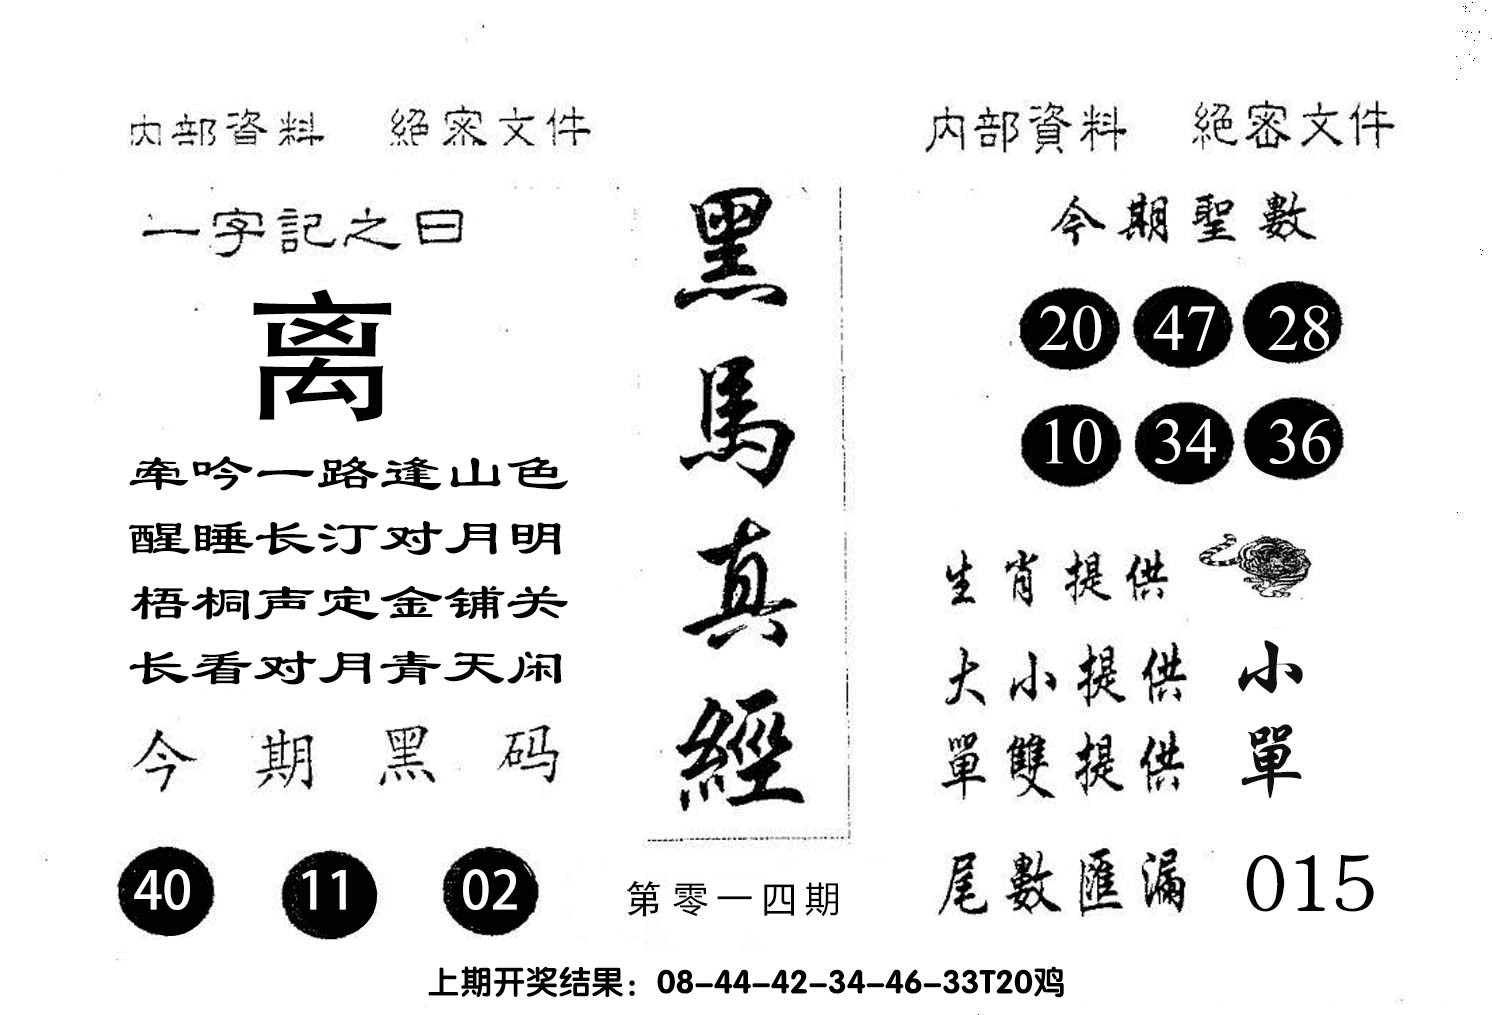 内部資料 絕密文件
一字記之曰
离
牽吟一路逢山色
醒睡长汀对月明
梧桐声定金铺关
长看对月青天闲
今期黑码
40 11 02
黑馬真經
第零一四期
内部資料 絕密文件
今期聖數
20 47 28
10 34 36
生肖提供
大小提供 小
單雙提供 單
尾數匯漏 015
上期开奖结果：08-44-42-34-46-33T20鸡